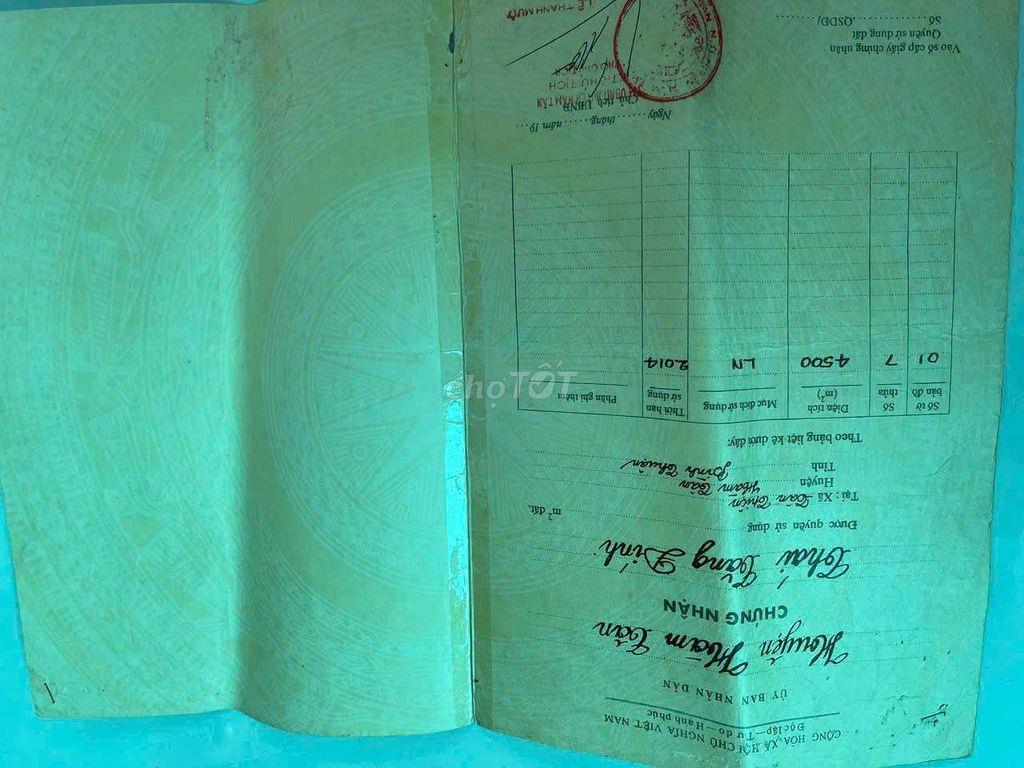 CỘNG HÒA XÃ HỘI CHỦ NGHĨA VIỆT NAM
Độc lập — Tự do — Hạnh phúc
ỦY BAN NHÂN DÂN
Huyện Hàm Tân
CHỨNG NHẬN
Thái Tăng Dinh
Được quyền sử dụng m² đất.
Tại : Xã Tân Thiện
Huyện Hàm Tân
Tỉnh Bình Thuận
Theo bảng liệt kê dưới đây:
Số tờ bản đồ Số thửa Diện tích (m²) Mục đích sử dụng Thời hạn sử dụng Phần ghi thêm
01 7 4500 LN 2014
Ngày ........ tháng ........ năm 19 ....
Chủ tịch UBND
LÊ THANH MƯỜ
Vào sổ cấp giấy chứng nhận
Quyền sử dụng đất
Số ........ QSDĐ/
chợTỐT